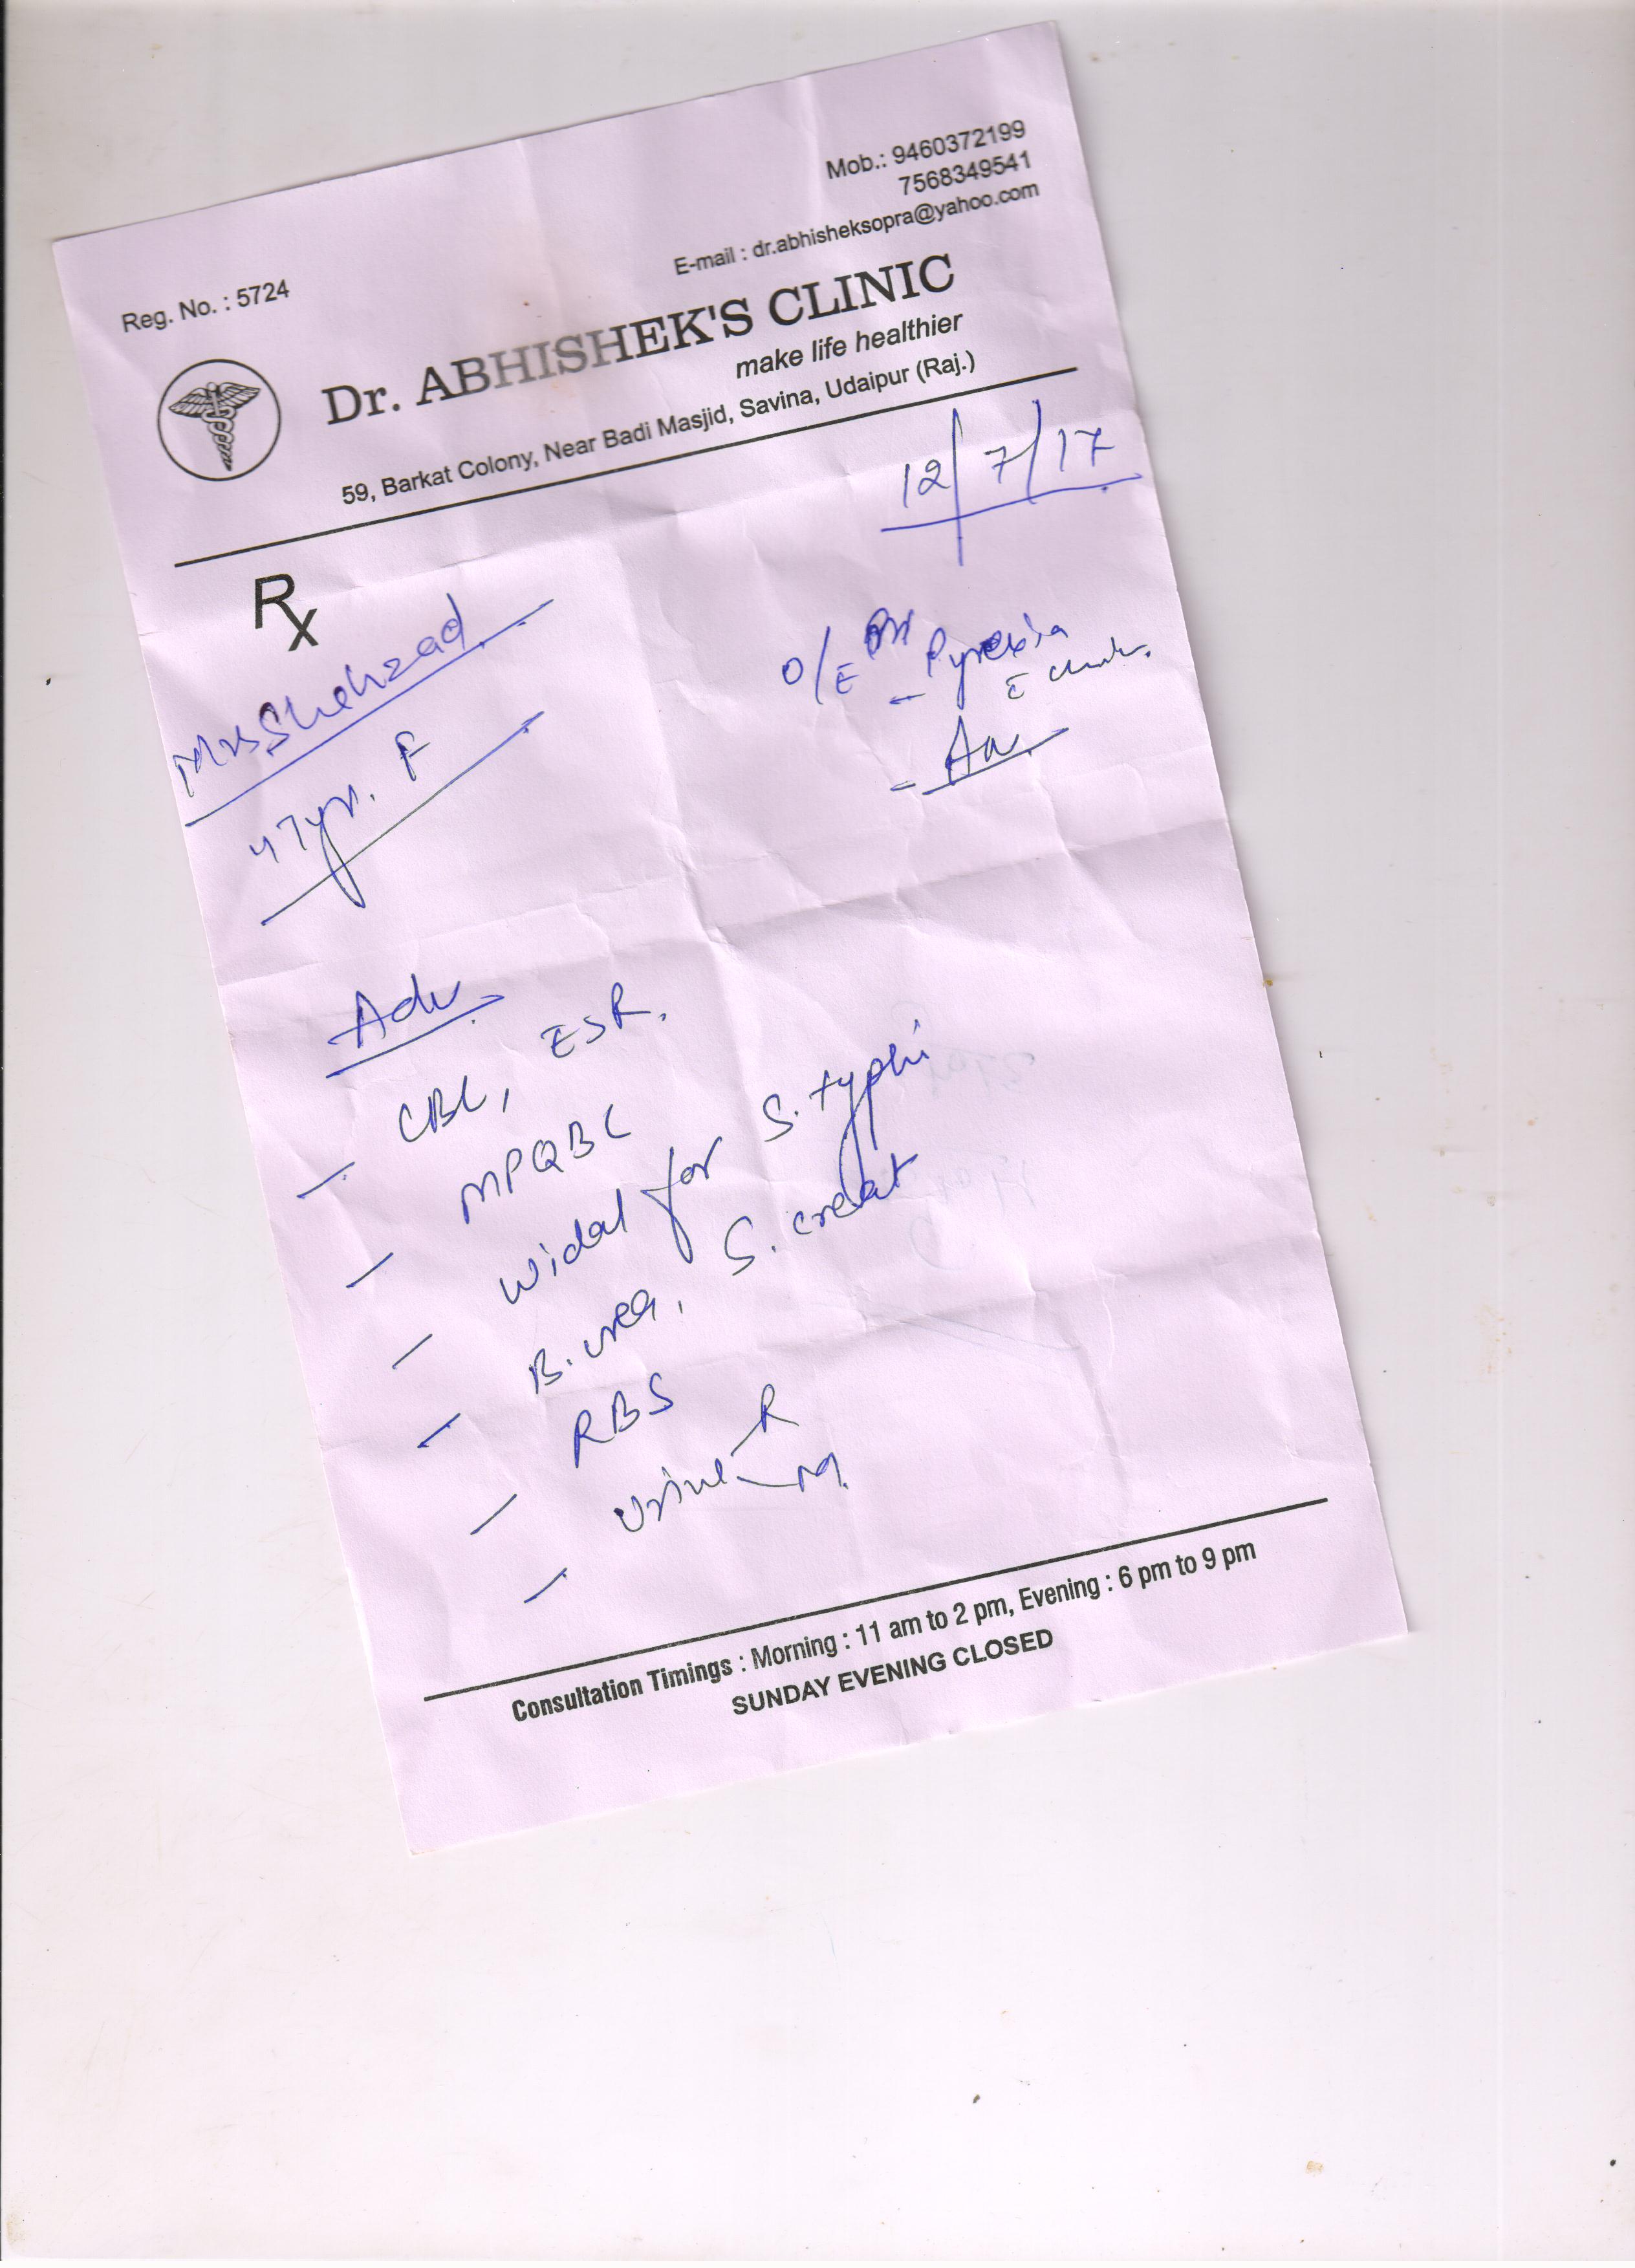 Mob.: 9460372199
7568349541
E-mail : dr.abhisheksopra@yahoo.com
Reg. No. : 5724
Dr. ABHISHEK'S CLINIC
make life healthier
59, Barkat Colony, Near Badi Masjid, Savina, Udaipur (Raj.)
12/7/17
Rx
Mrs Shehzad
47yr. F
O/E
- Pyrexia
Adv.
- CBC, ESR.
- MPQBC
- Widal for S. typhi
- B. urea, S. creat
- RBS
- Urine R
M.
Consultation Timings : Morning : 11 am to 2 pm, Evening : 6 pm to 9 pm
SUNDAY EVENING CLOSED